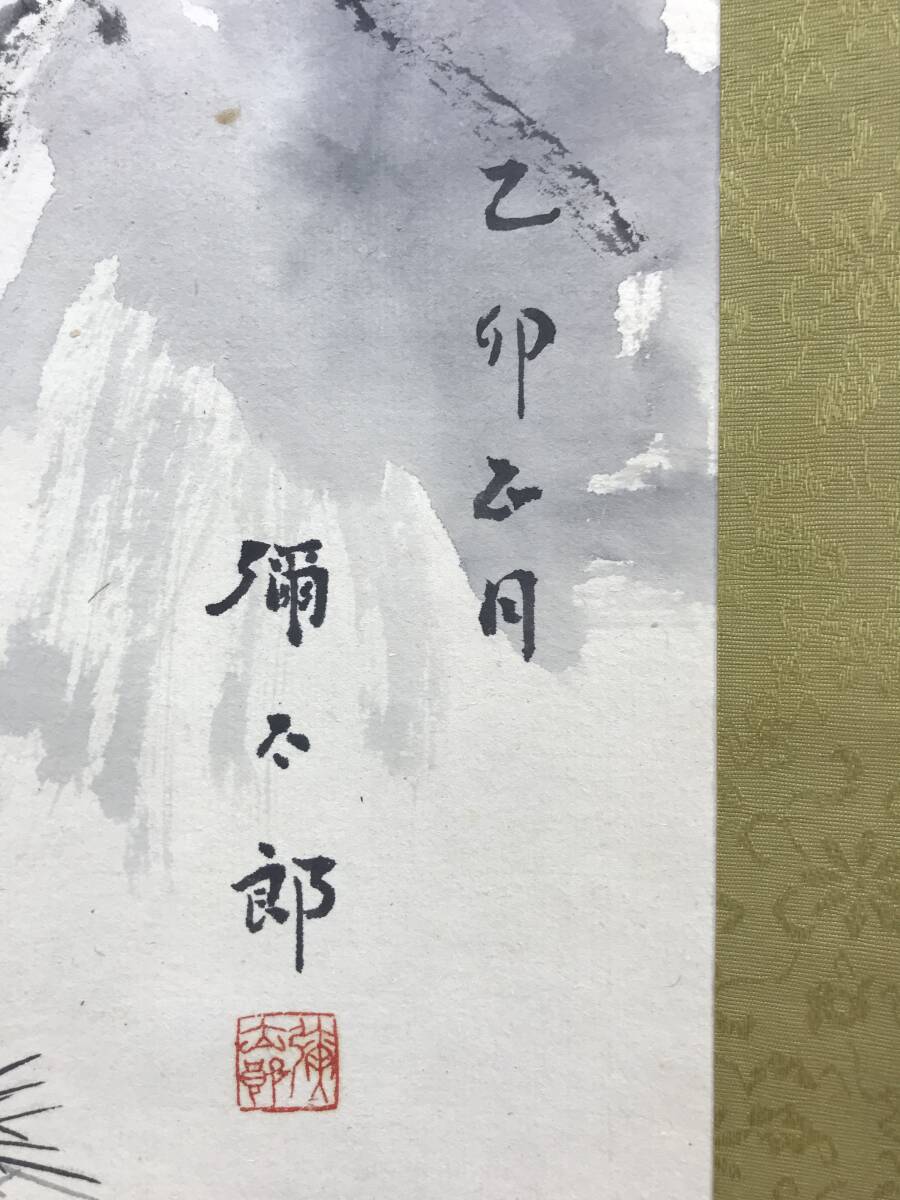 乙卯正月
彌太郎
彌太郎